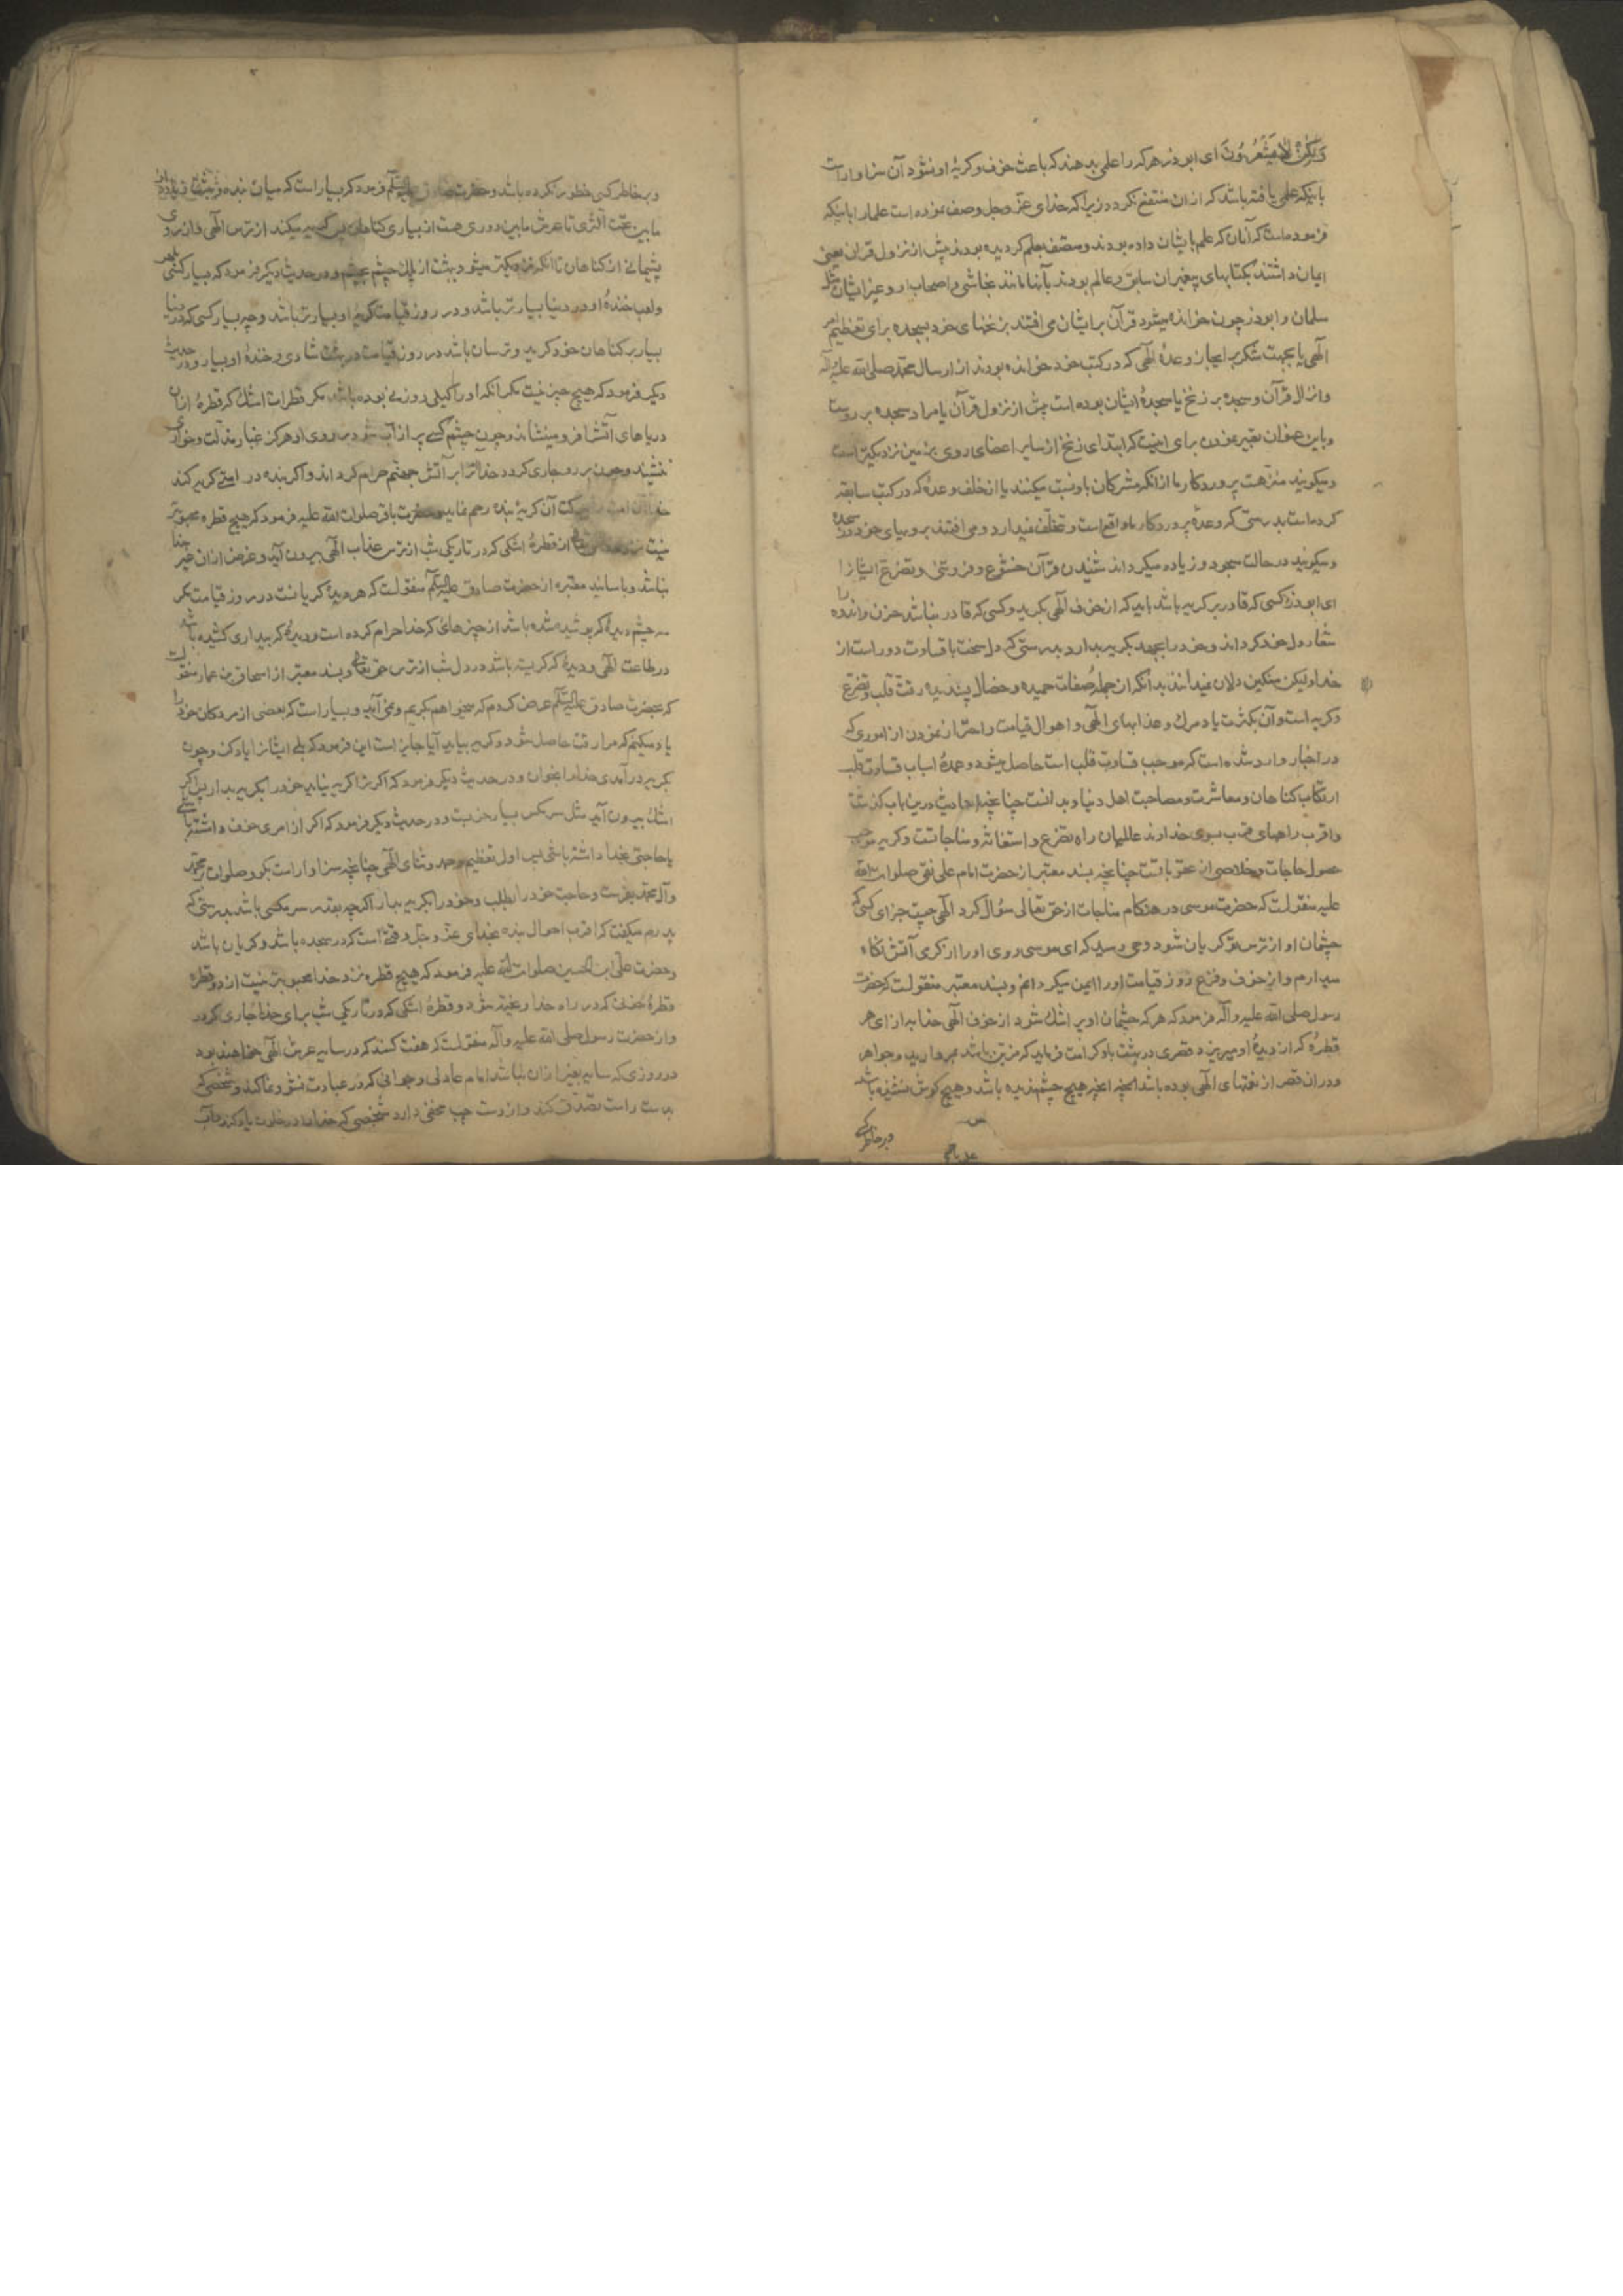 وَلٰكِنْ لَا يَشْعُرُونَ ای ابوذر هرکه را علمی بدهند که باعث خوف و کریهٔ او نشود آن سزاوار است
باینکه علمی یافته باشد که از ان منتفع نکردد زیرا که خدای عزّ وجل وصف نموده است علما را باینکه
فرموده است که آنان که علم بایشان داده بودند و متصف بعلم کردیده بودند پیش از نزول قران یعنی
ایمان داشتند بکتابهای پیغبران سابق و عالم بودند بآنها مانند نجاشی و اصحاب او و غیر ایشان مثل
سلمان و ابوذر چون خوانده میشود قرآن بر ایشان می افتند بر زنخهای خود بسجده برای تعظیم امر
الهی یا بجهت شکر بر انجاز وعدهٔ الهی که در کتب خود خوانده بودند از ارسال محمّد صلی الله علیه وآله
وانزال قرآن و سجده بر زنخ یا سجدهٔ ایشان بوده است پیش از نزول قرآن یا مراد سجده بر روست
وباین عنوان تعبیر نمودن برای اینست که ابتدای زنخ از سایر اعضای روی بزمین نزدیکتر است
ومیکویند منزّهست پروردکار ما از انکه مشرکان باو نسبت میکنند یا از خلف وعدهٔ که در کتب سابقه
کرده است بدرستی که وعدهٔ پروردکار ما واقع است وتخلّف نمیدارد و می افتند بر رویهای خود در سجده
ومیکویند در حالت سجود و زیاده میکرداند شنیدن قرآن خشوع و فروتنی و تضرع ایشانرا
ای ابوذر کسی که قادر بر کریه باشد باید که از خوف الهی بکرید وکسی که قادر نباشد حزن و اندوه را
شعار دل خود کرداند و خود را بجهد بکریه بدارد بدرستی که دل سخت با قساوت دور است از
خدا ولیکن سنکین دلان نمیدانند بدانکه از جملهٔ صفات حمیده و خصال پسندیده رقت قلب و تضرع
وکریه است وآن بکثرت یاد مرک و عذابهای الهی و اهوال قیامت و احتراز نمودن از اموری که
در اخبار وارد شده است که موجب قساوت قلب است حاصل میشود و عمدهٔ اسباب قساوت قلب
ارتکاب کناهان و معاشرت و مصاحبت اهل دنیا و بدانست چنانچه احادیث درین باب کذشت
واقرب راههای قرب بسوی خداوند عالمیان راه تضرع و استغاثه و مناجاتست وکریه موجب
حصول حاجات و خلاصی از عقوباتست چنانچه بسند معتبر از حضرت امام علی نقی صلوات الله
علیه منقولست که حضرت موسی در هنکام مناجات از حق تعالی سؤال کرد الهی چیست جزای کسی که
چشمان او از ترس تو کریان شود وحی رسید که ای موسی روی او را از کرمی آتش نکاه
میدارم واز خوف و فزع روز قیامت او را ایمن میکردانم وبسند معتبر منقولست که حضرت
رسول صلی الله علیه وآله فرمود که هرکه چشمان او پر اشک شود از خوف الهی خدا به ازای هر
قطرهٔ که از دیدهٔ او میریزد قصری در بهشت باو کرامت فرماید که مزیّن باشد بمروارید و جواهر
ودران قصر از نعمتهای الهی بوده باشد انچه هیچ چشم ندیده باشد وهیچ کوش نشنیده باشد
وبرخاطر کسی
وبرخاطر کسی خطور نکرده باشد وحضرت صادق علیه السلام فرمود که بسیار است که میان بنده و بهشت زیاده از
مابین تحت الثری تا عرش مابین دوری هست از بسیاری کناهان پس کریه میکند از ترس الهی و از روی
پشیمانی از کناهان تا انکه نزدیکتر میشود بهشت از پلک چشم بچشم ودر حدیث دیکر فرمود که بسیار کسی
ولعب خندهٔ او در دنیا بسیار باشد ودر روز قیامت کریهٔ او بسیار باشد وچه بسیار کسی که در دنیا
بسیار بر کناهان خود کرید وترسان باشد در روز قیامت در بهشت شادی و خندهٔ او بسیار ودر حدیث
دیکر فرمود که هیچ چیز نیست مکر انکه او را کیلی و وزنی بوده باشد مکر قطرات اشک که قطرهٔ از ان
دریاهای آتش را فرو مینشاند وچون چشم کسی پر از آب شود بر روی او هرکز غبار مذلت وخواری
ننشیند وچون بر رو جاری کردد خدا او را بر آتش جهنم حرام کرداند واکر بنده در امتی کریه کند
خدا ان امت را ببرکت آن کریهٔ بنده رحم نماید وحضرت باقر صلوات الله علیه فرمود که هیچ قطره محبوبتر
نیست نزد خدا از قطرهٔ اشکی که در تاریکی شب از ترس عذاب الهی بیرون آید و غرض از ان غیر خدا
نباشد وباسانید معتبره از حضرت صادق علیه السلام منقولست که هر دیدهٔ کریانست در روز قیامت مکر
سه چشم دیدهٔ که پوشیده شده باشد از چیزهای که خدا حرام کرده است ودیدهٔ که بیداری کشیده باشد
در طاعت الهی ودیدهٔ که کریسته باشد در دل شب از ترس حق تعالی وبسند معتبر از اسحاق بن عمار منقولست
که بحضرت صادق علیه السلام عرض کردم که میخواهم بکریم ونمی آید وبسیار است که بعضی از مردکان خود را
یاد میکنم که مرا رقت حاصل شود وکریه بیاید آیا جایز است این فرمود که بلی ایشانرا یاد کن وچون
بکریه درآمدی خدا را بخوان ودر حدیث دیکر فرمود که اکر ترا کریه نیاید خود را بکریه بدار پس اکر
اشک بیرون آید مثل سر مکس بسیار خوبست ودر حدیث دیکر فرمود که اکر از امری خوف داشته باشی
یا حاجتی بخدا داشته باشی پس اول تعظیم وحمد وثنای الهی چنانچه سزاوار است بکو وصلوات بر محمّد
وآل محمّد بفرست وحاجت خود را بطلب وخود را بکریه بدار اکرچه بقدر سر مکسی باشد بدرستی که
پدرم میکفت که اقرب احوال بنده بخدای عزّ وجلّ وقتی است که در سجده باشد وکریان باشد
وحضرت علیّ ابن الحسین صلوات الله علیه فرمود که هیچ قطره نزد خدا محبوبتر نیست از دو قطره
قطرهٔ خونی که در راه خدا ریخته شود و قطرهٔ اشکی که در تاریکی شب برای خدا جاری کردد
واز حضرت رسول صلی الله علیه وآله منقولست که هفت کسند که در سایه عرش الهی خواهند بود
در روزی که سایه بغیر از ان نباشد امام عادلی وجوانی که در عبادت نشو ونما کند وشخصی که
بدست راست تصدّق کند واز دست چپ مخفی دارد وشخصی که خدا را در خلوت یاد کرد